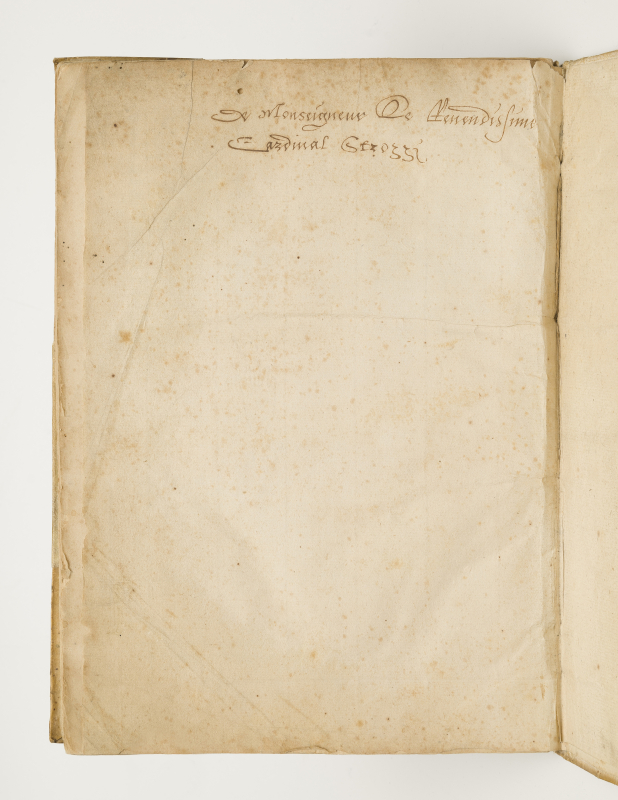 De Monseigneur Le Reuendissime
Cardinal Strozzi.